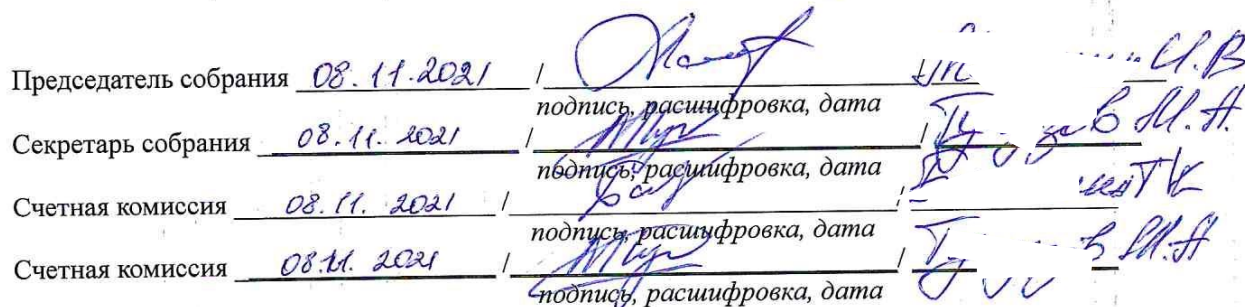 Председатель собрания 08.11.2021 / И.В
подпись, расшифровка, дата
Секретарь собрания 08.11.2021 / / М.А.
подпись, расшифровка, дата
Счетная комиссия 08.11.2021 / /
подпись, расшифровка, дата
Счетная комиссия 08.11.2021 / / М.А
подпись, расшифровка, дата